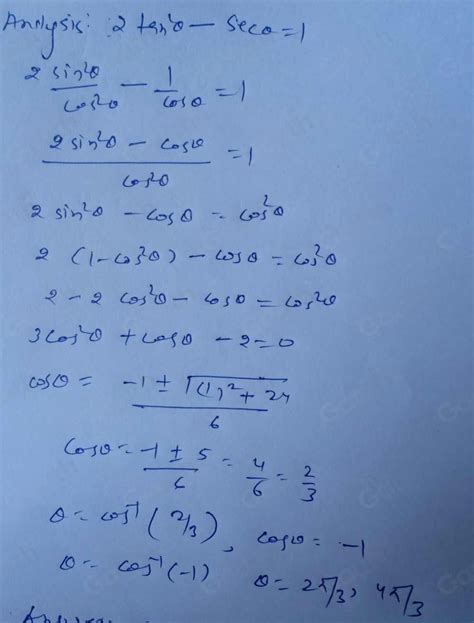 Analysis: 2 tan²θ − secθ = 1
2 sin²θ/cos²θ − 1/cosθ = 1
(2 sin²θ − cosθ)/cos²θ = 1
2 sin²θ − cosθ = cos²θ
2 (1 − cos²θ) − cosθ = cos²θ
2 − 2 cos²θ − cosθ = cos²θ
3 cos²θ + cosθ − 2 = 0
cosθ = (−1 ± √((1)² + 24))/6
cosθ = (−1 ± 5)/6 = 4/6 = 2/3
θ = cos⁻¹(2/3), cosθ = −1
θ = cos⁻¹(−1) θ = 2π/3, 4π/3